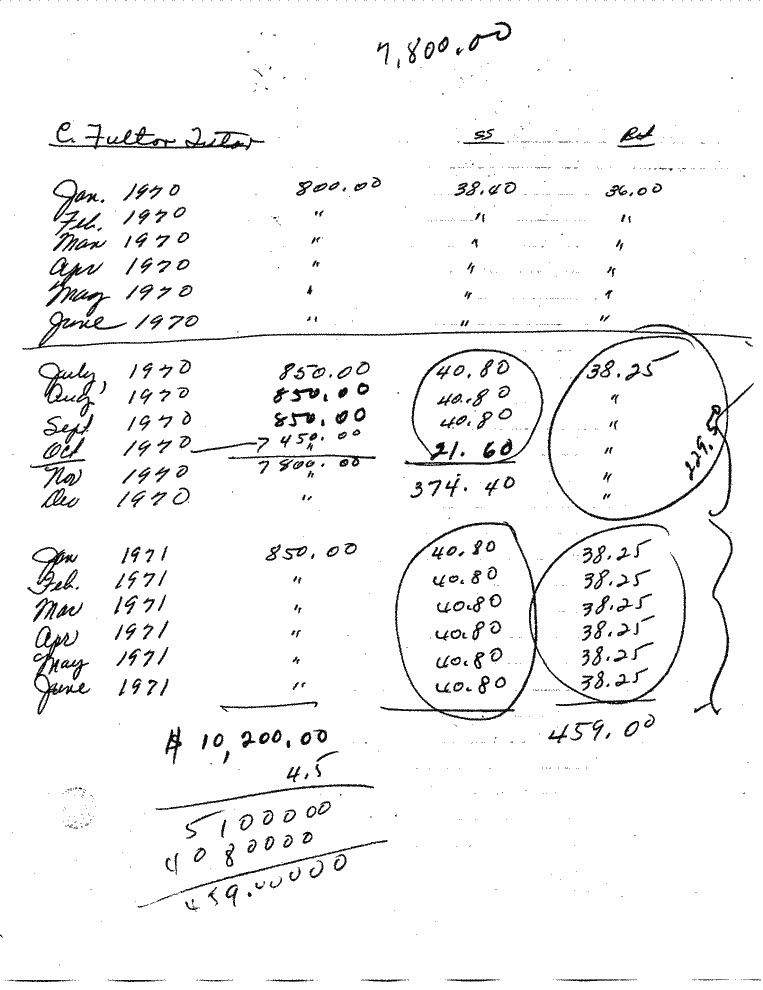 7,800.00
C. Fulton Tutor SS Ret
Jan. 1970 800.00 38.40 36.00
Feb. 1970 " " "
Mar 1970 " " "
Apr 1970 " " "
May 1970 " " "
June 1970 " " "
July 1970 850.00 40.80 38.25
Aug 1970 850.00 40.80 "
Sept 1970 850.00 40.80 "
Oct 1970 7 450.00 21.60 "
Nov 1970 7800.00 " "
Dec 1970 " 374.40 "
229.50
Jan 1971 850.00 40.80 38.25
Feb. 1971 " 40.80 38.25
Mar 1971 " 40.80 38.25
Apr 1971 " 40.80 38.25
May 1971 " 40.80 38.25
June 1971 " 40.80 38.25
$ 10,200.00 459.00
4.5
5100000
4080000
459.00000